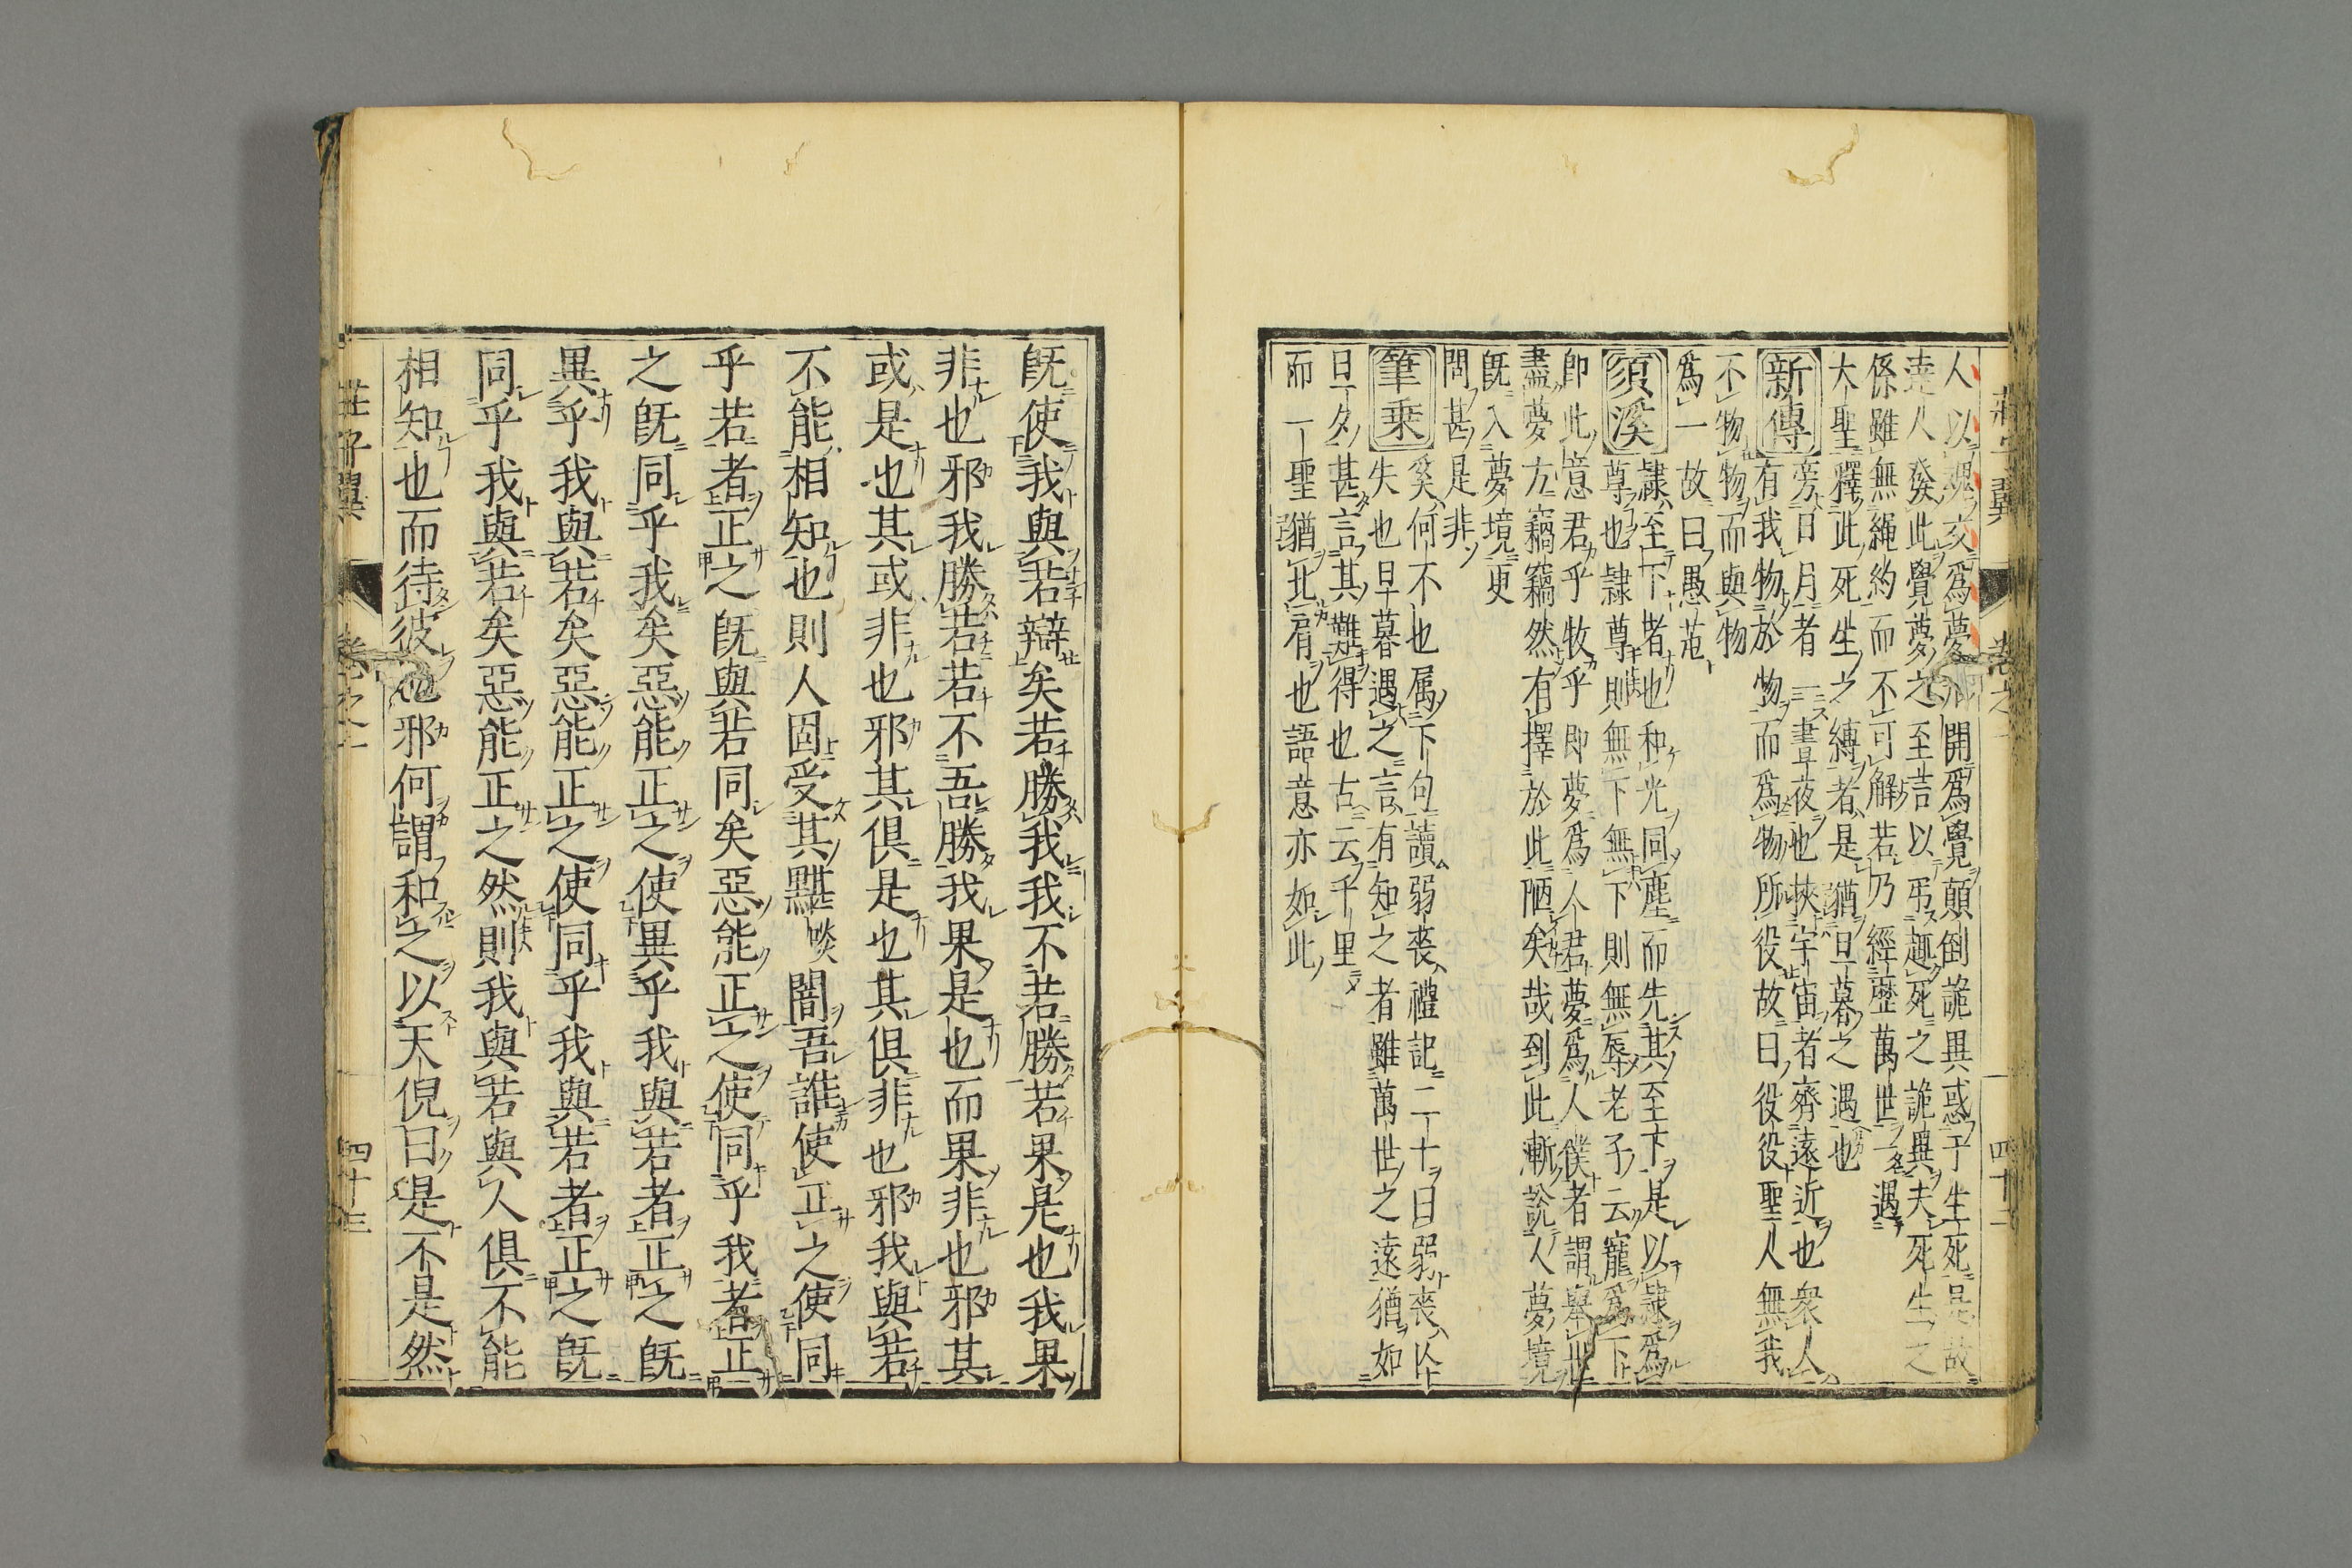 人以魂交爲夢形開爲覺顛倒詭異惑于生死是故
達人發此覺夢之至言以弔趣死之詭與夫死生之
係雖無繩約而不可解若乃經歷萬世一遇
大聖釋此死生之縛者是猶旦暮之遇也
新傳
旁日月者一晝夜也挾宇宙者齊遠近也衆人
有我物於物而爲物所役故曰役役聖人無我
不物物而與物
爲一故曰愚芚
須溪
隷至下者也和光同塵而先其至下是以隷爲
尊也隷尊則無下無下則無辱老子云寵爲下
即此意君乎牧乎即夢爲人君夢爲人僕者謂舉世
盡夢方竊竊然有擇於此陋矣哉到此漸說人夢境
既入夢境更
問甚是非
筆乗
奚何不也属下句讀弱喪禮記二十曰弱喪
失也旦暮遇之言有知之者雖萬世之遠猶如
旦夕甚言其難得也古云千里
而一聖猶比肩也語意亦如此
莊子翼 卷之一 四十二
既使我與若辯矣若勝我我不若勝若果是也我果
非也邪我勝若若不吾勝我果是也而果非也邪其
或是也其或非也邪其俱是也其俱非也邪我與若
不能相知也則人固受其黮闇吾誰使正之使同
乎若者正之既與若同矣惡能正之使同乎我者正
之既同乎我矣惡能正之使異乎我與若者正之既
異乎我與若矣惡能正之使同乎我與若者正之既
同乎我與若矣惡能正之然則我與若與人俱不能
相知也而待彼也邪何謂和之以天倪曰是不是然
莊子翼 卷之一 四十三